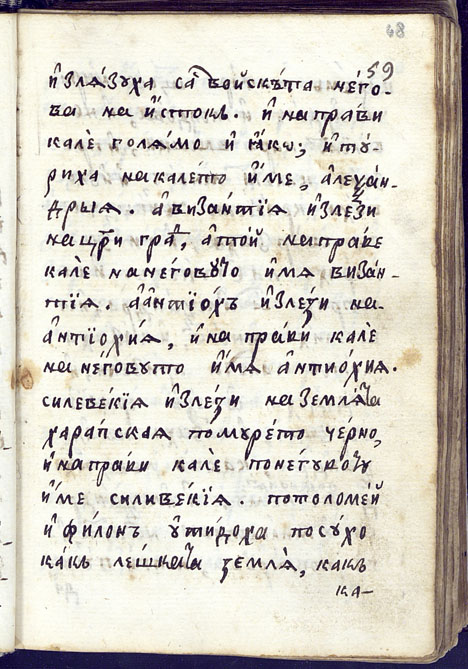 68
59
и҆злѧ́зуха са̀ войскѣта не́го-
ва на и҆́стокъ. и҆ напра́ви
калѐ голѧ́мо и҆ ꙗ҆́ко; и҆ тꙋ́-
риха накале́то и҆́ме, а҆леѯа́н-
дрыѧ. а҆ византі́ѧ и҆зле́зи
на цр҃и гра́д, а҆ то́й напра́ве
калѐ нане́говꙋто и҆́мѧ виза́н-
тїѧ. а҆ а҆нтїо́хъ и҆зле́зи на-
а҆нтїохи́ѧ, и҆ напра́ви калѐ
нане́говуто и҆́мѧ а҆нтио́хиѧ.
силеве́кїѧ и҆зле́зи на землѧ́та
хара́пскаѧ по муре́то че́рно,
и҆ напра́ви калѐ по не́гувоту
и҆́ме силиве́кїѧ. потоломе́й
и҆ фи́лонъ ѿи́доха посу́хо
ка́къ ле́шката землѧ̀, какъ
ка-